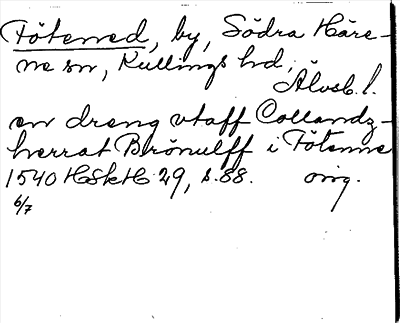 Fötened, by, Södra Häre-
ne sn, Kullings hd,
Älvsb. l.
en dreng vtaff Collandz-
herrat Brönulff i Fötenne
1540 HSkH 29, s. 88. orig.
6/7